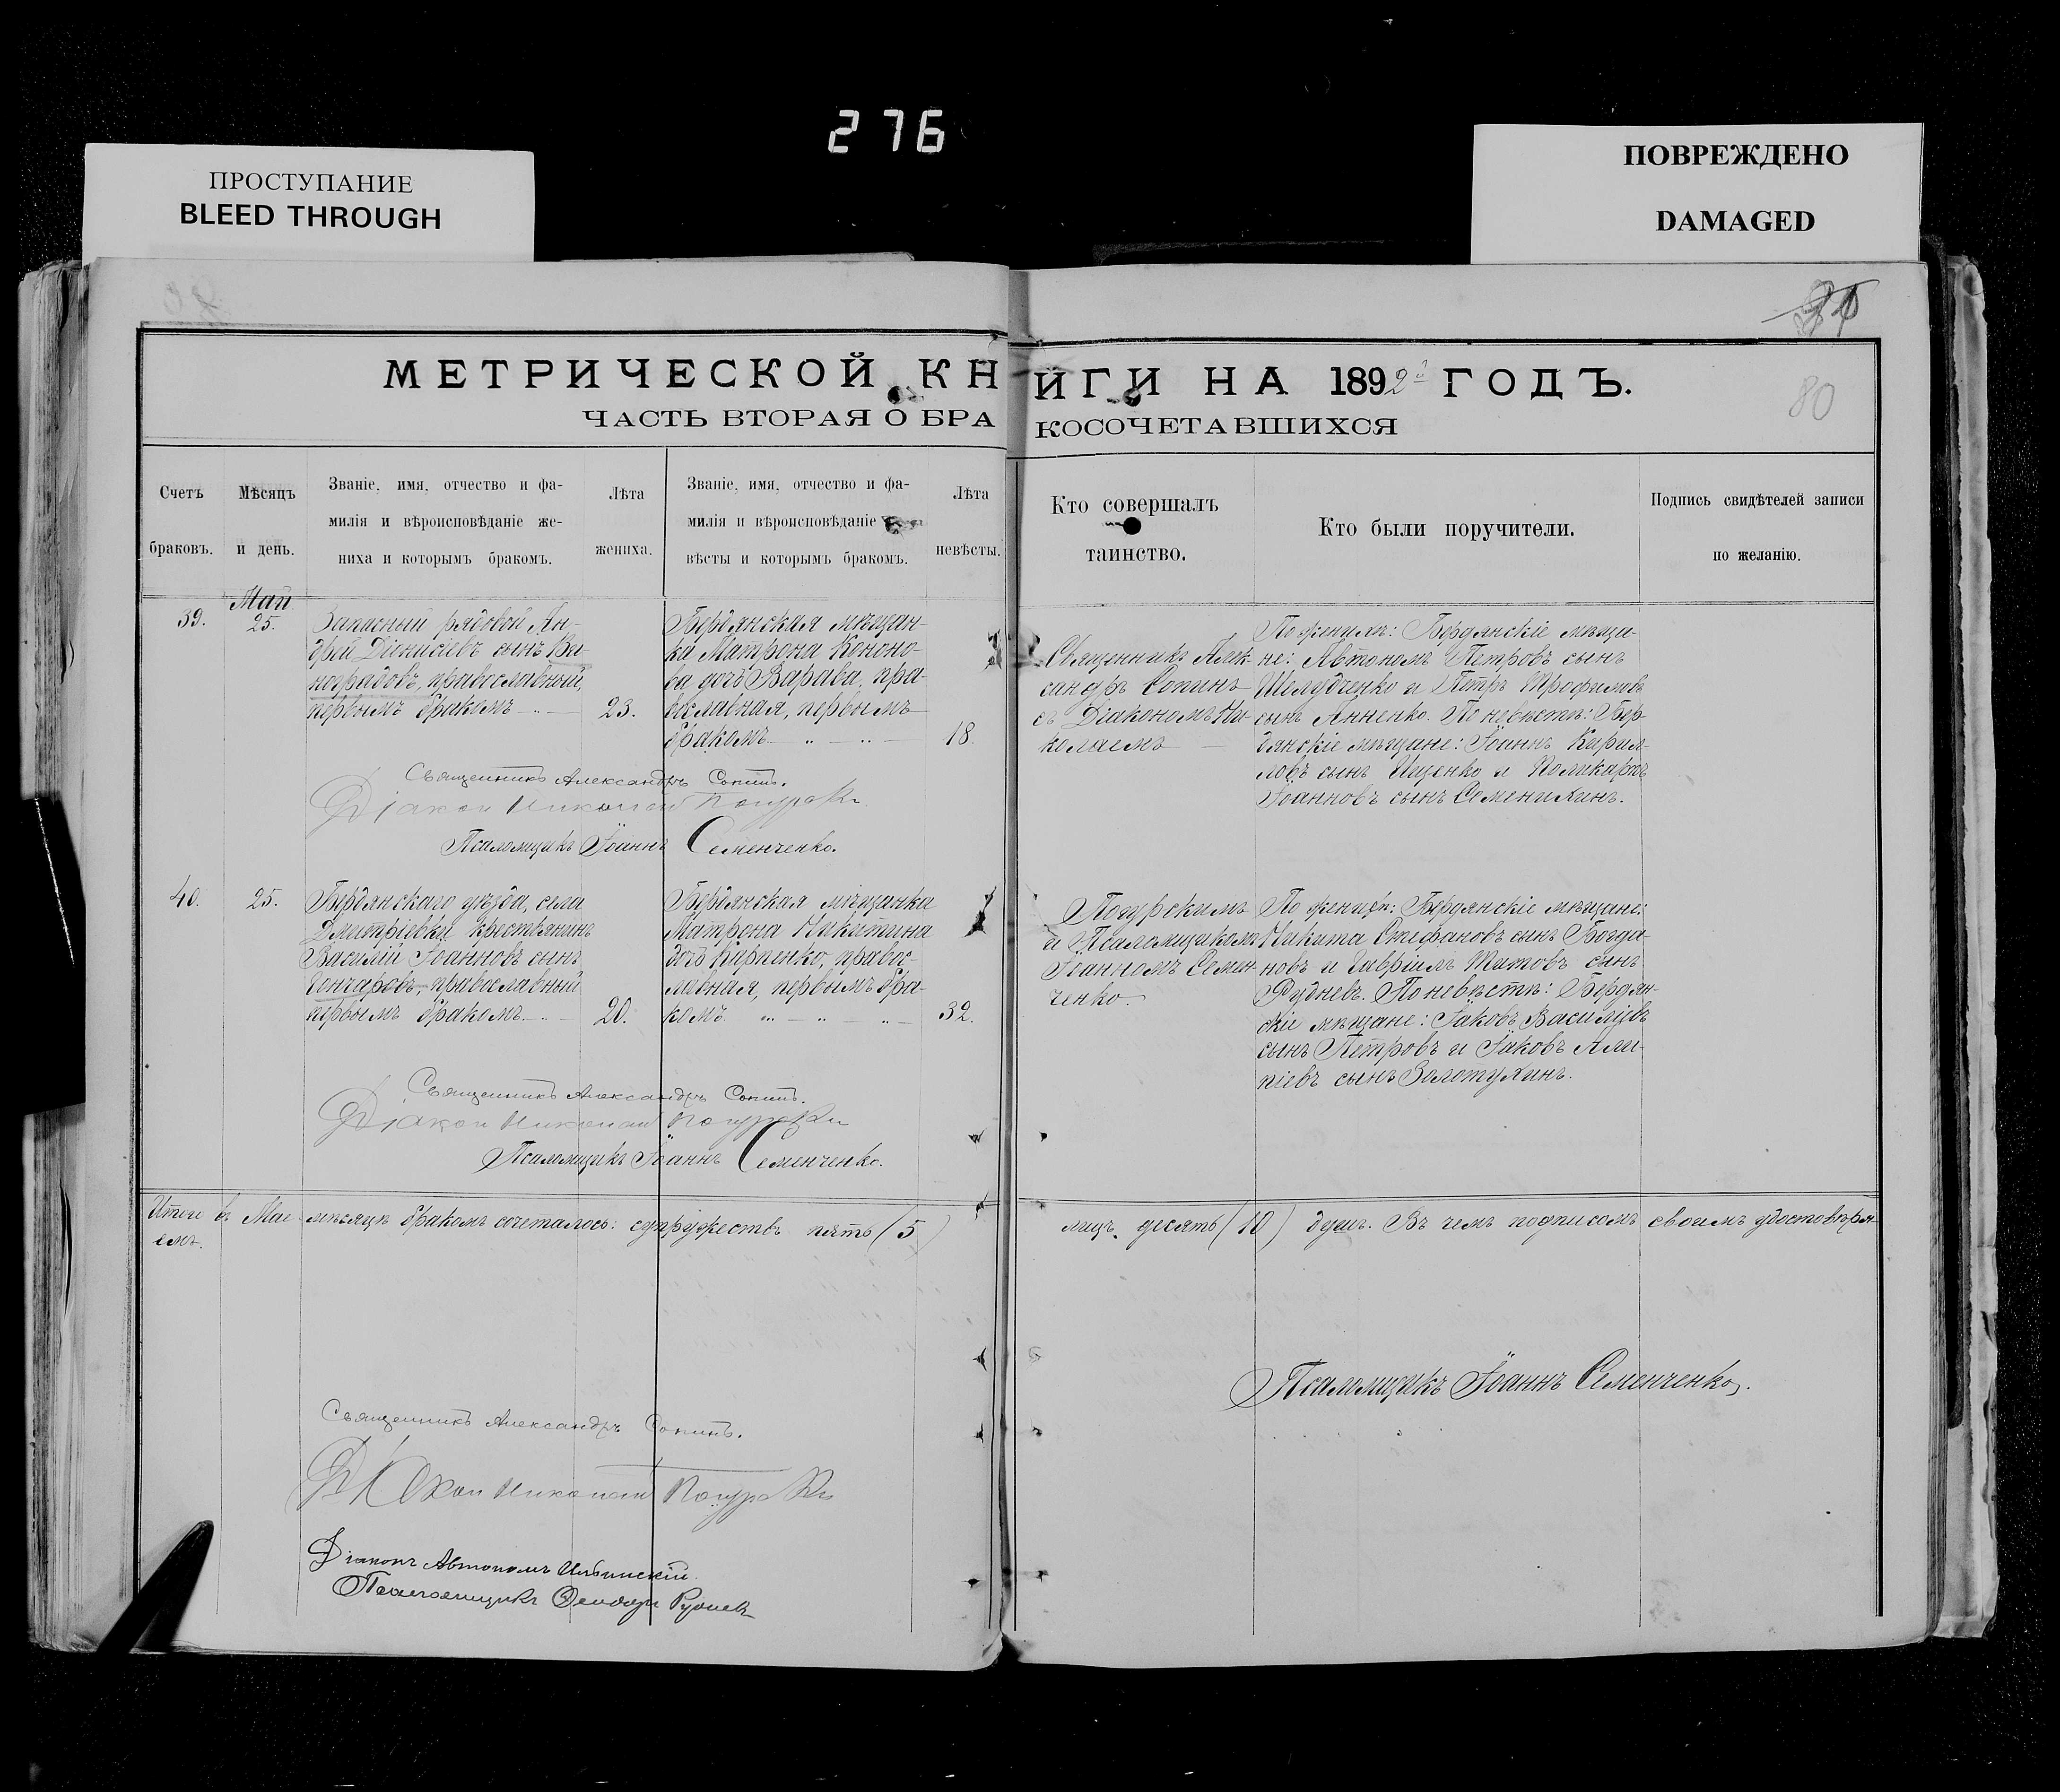 276
ПРОСТУПАНИЕ
BLEED THROUGH
ПОВРЕЖДЕНО
DAMAGED
80
МЕТРИЧЕСКОЙ КНИГИ НА 1892й ГОДЪ.
ЧАСТЬ ВТОРАЯ О БРАКОСОЧЕТАВШИХСЯ
Счетъ
браковъ.
Мѣсяцъ
и день.
Званіе, имя, отчество и фа-
милія и вѣроисповѣданіе же-
ниха и которымъ бракомъ.
Лѣта
жениха.
Званіе, имя, отчество и фа-
милія и вѣроисповѣданіе
вѣсты и которымъ бракомъ.
Лѣта
невѣсты.
Кто совершалъ
таинство.
Кто были поручители.
Подпись свидѣтелей записи
по желанію.
Май
39.
25.
Запасный рядовой Ан-
дрей Діонисіевъ сынъ Ви-
ноградовъ, православный,
первымъ бракомъ
23.
Бердянская мѣщан-
ка Матрона Кононо-
ва дочь Варава, пра-
вославная, первымъ
бракомъ
18.
Священникъ Алек-
сандръ Сопинъ
съ Діакономъ Ни-
колаемъ
По женихѣ: Бердянскіе мѣща-
не: Автономъ Петровъ сынъ
Шелудченко и Петръ Трофимовъ
сынъ Анненко. По невѣстѣ: Бер-
дянскіе мѣщане: Іоаннъ Кирил-
ловъ сынъ Ищенко и Поликарпъ
Іоанновъ сынъ Семенихинъ.
Священникъ Александръ Сопинъ.
Діакон Николай
Псаломщикъ Іоаннъ Семенченко.
40.
25.
Бердянскаго уѣзда, села
Дмитріевки крестьянинъ
Василій Іоанновъ сынъ
Гончаровъ, православный
первымъ бракомъ
20.
Бердянская мѣщанка
Матрона Никитина
дочь Карпенко, правос-
лавная, первымъ бра-
комъ
32.
Погурскимъ
и Псаломщикомъ
Іоанномъ Семен-
ченко.
По женихѣ: Бердянскіе мѣщане:
Никита Стефановъ сынъ Богда-
новъ и Гавріилъ Титовъ сынъ
Рудневъ. По невѣстѣ: Бердян-
скіе мѣщане: Іаковъ Василіевъ
сынъ Петровъ и Іаковъ Али-
піевъ сынъ Золотухинъ.
Священникъ Александръ Сопинъ.
Діакон Николай
Псаломщикъ Іоаннъ Семенченко.
Итого въ Мае мѣсяцѣ бракомъ сочеталось: супружествъ пять (5) лицъ десять (10) душъ. Въ чемъ подписомъ своимъ удостовѣря-
емъ.
Священникъ Александръ Сопинъ.
Діакон Николай
Псаломщикъ Іоаннъ Семенченко.
Діаконъ Автономъ Ильинскій
Псаломщикъ Рудневъ